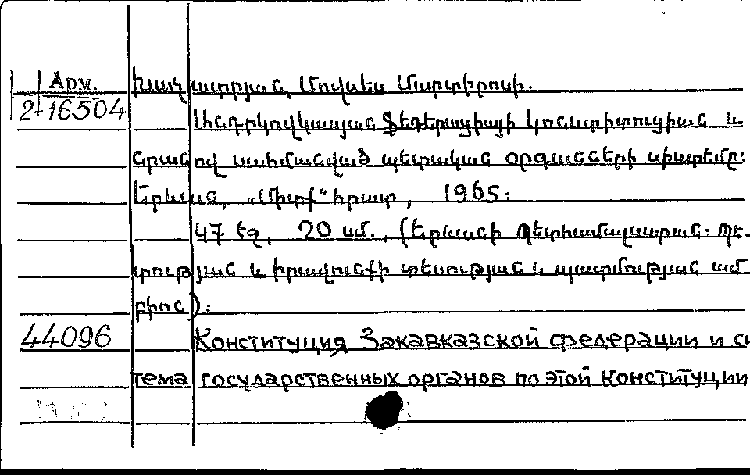 Арм.
2-16504
Խաչատրյան, Մովսես Մարտիրոսի.
Անդրկովկասյան ֆեդերացիայի կոնստիտուցիան և
նրանով սահմանված պետական օրգանների սիստեմը:
Երևան, „Միտք“ հրատ, 1965:
47 էջ, 20 սմ., (Երևանի պետհամալսարան. Պե-
տության և իրավունքի տեսության և պատմության ամ-
բիոն):
44096 Конституция Закавказской федерации и си
тема государственных органов по этой конституции